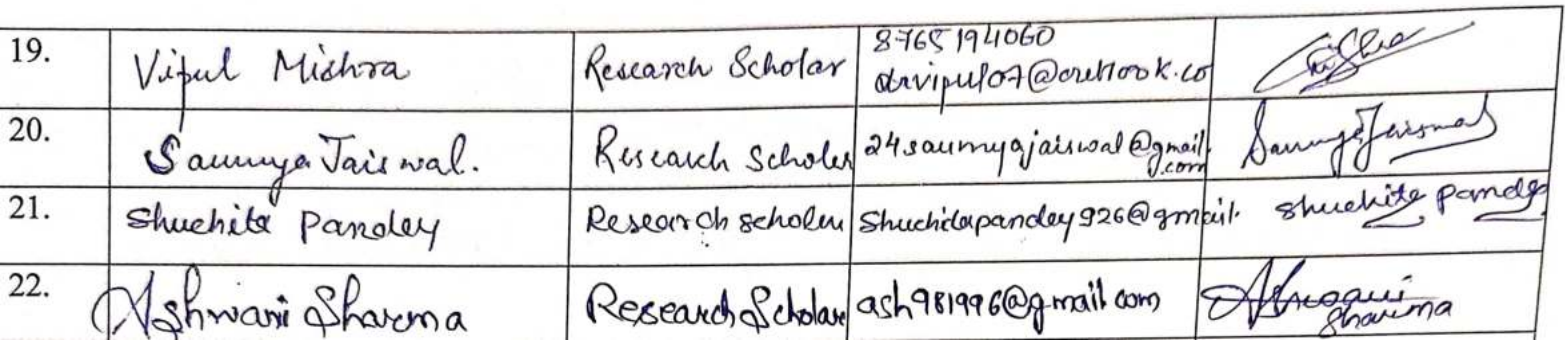 19. Vipul Mishra Research Scholar 8765194060
drvipul07@outlook.co
20. Saumya Jaiswal. Research Scholar 24saumyajaiswal@gmail.
com Saumya Jaiswal
21. Shuchita Pandey Research scholar Shuchitapandey926@gmail. Shuchita Pandey
22. Ashwani Sharma Research Scholar ash981996@gmail.com Ashwani
Sharma